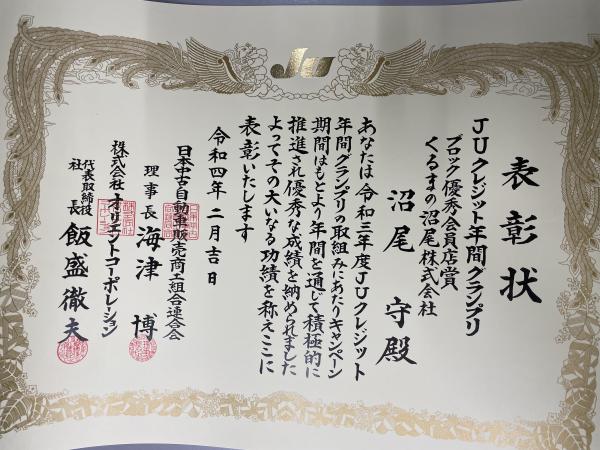 JU
表彰状
JUクレジット年間グランプリ
ブロック優秀会員店賞
くるまの沼尾株式会社
沼尾 守殿
あなたは令和三年度JUクレジット
年間グランプリの取組みにあたりキャンペーン
期間はもとより年間を通じて積極的に
推進され優秀な成績を納められました
よってその大いなる功績を称えここに
表彰いたします
令和四年二月吉日
日本中古自動車販売商工組合連合会
理事長 海津 博
株式会社オリエントコーポレーション
代表取締役社長 飯盛徹夫